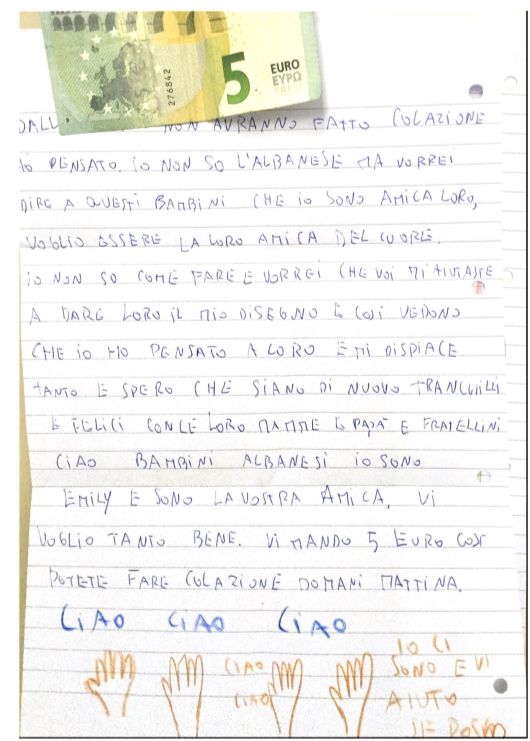 276842
5
EURO
ΕΥΡΩ
DALL NON AVRANNO FATTO COLAZIONE
HO PENSATO. IO NON SO L'ALBANESE MA VORREI
DIRE A QUESTI BAMBINI CHE IO SONO AMICA LORO,
VOGLIO ESSERE LA LORO AMICA DEL CUORE.
IO NON SO COME FARE E VORREI CHE VOI MI AIUTASTE
A DARE LORO IL MIO DISEGNO E COSI VEDONO
CHE IO HO PENSATO A LORO E MI DISPIACE
TANTO E SPERO CHE SIANO DI NUOVO TRANQUILLI
E FELICI CON LE LORO MAMME E PAPÀ E FRATELLINI
CIAO BAMBINI ALBANESI IO SONO
EMILY E SONO LA VOSTRA AMICA, VI
VOGLIO TANTO BENE. VI MANDO 5 EURO COSÌ
POTETE FARE COLAZIONE DOMANI MATTINA.
CIAO CIAO CIAO
CIAO
CIAO
IO CI
SONO E VI
AIUTO
SE POSSO